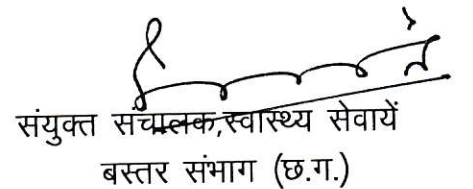 संयुक्त संचालक,स्वास्थ्य सेवायें
बस्तर संभाग (छ.ग.)